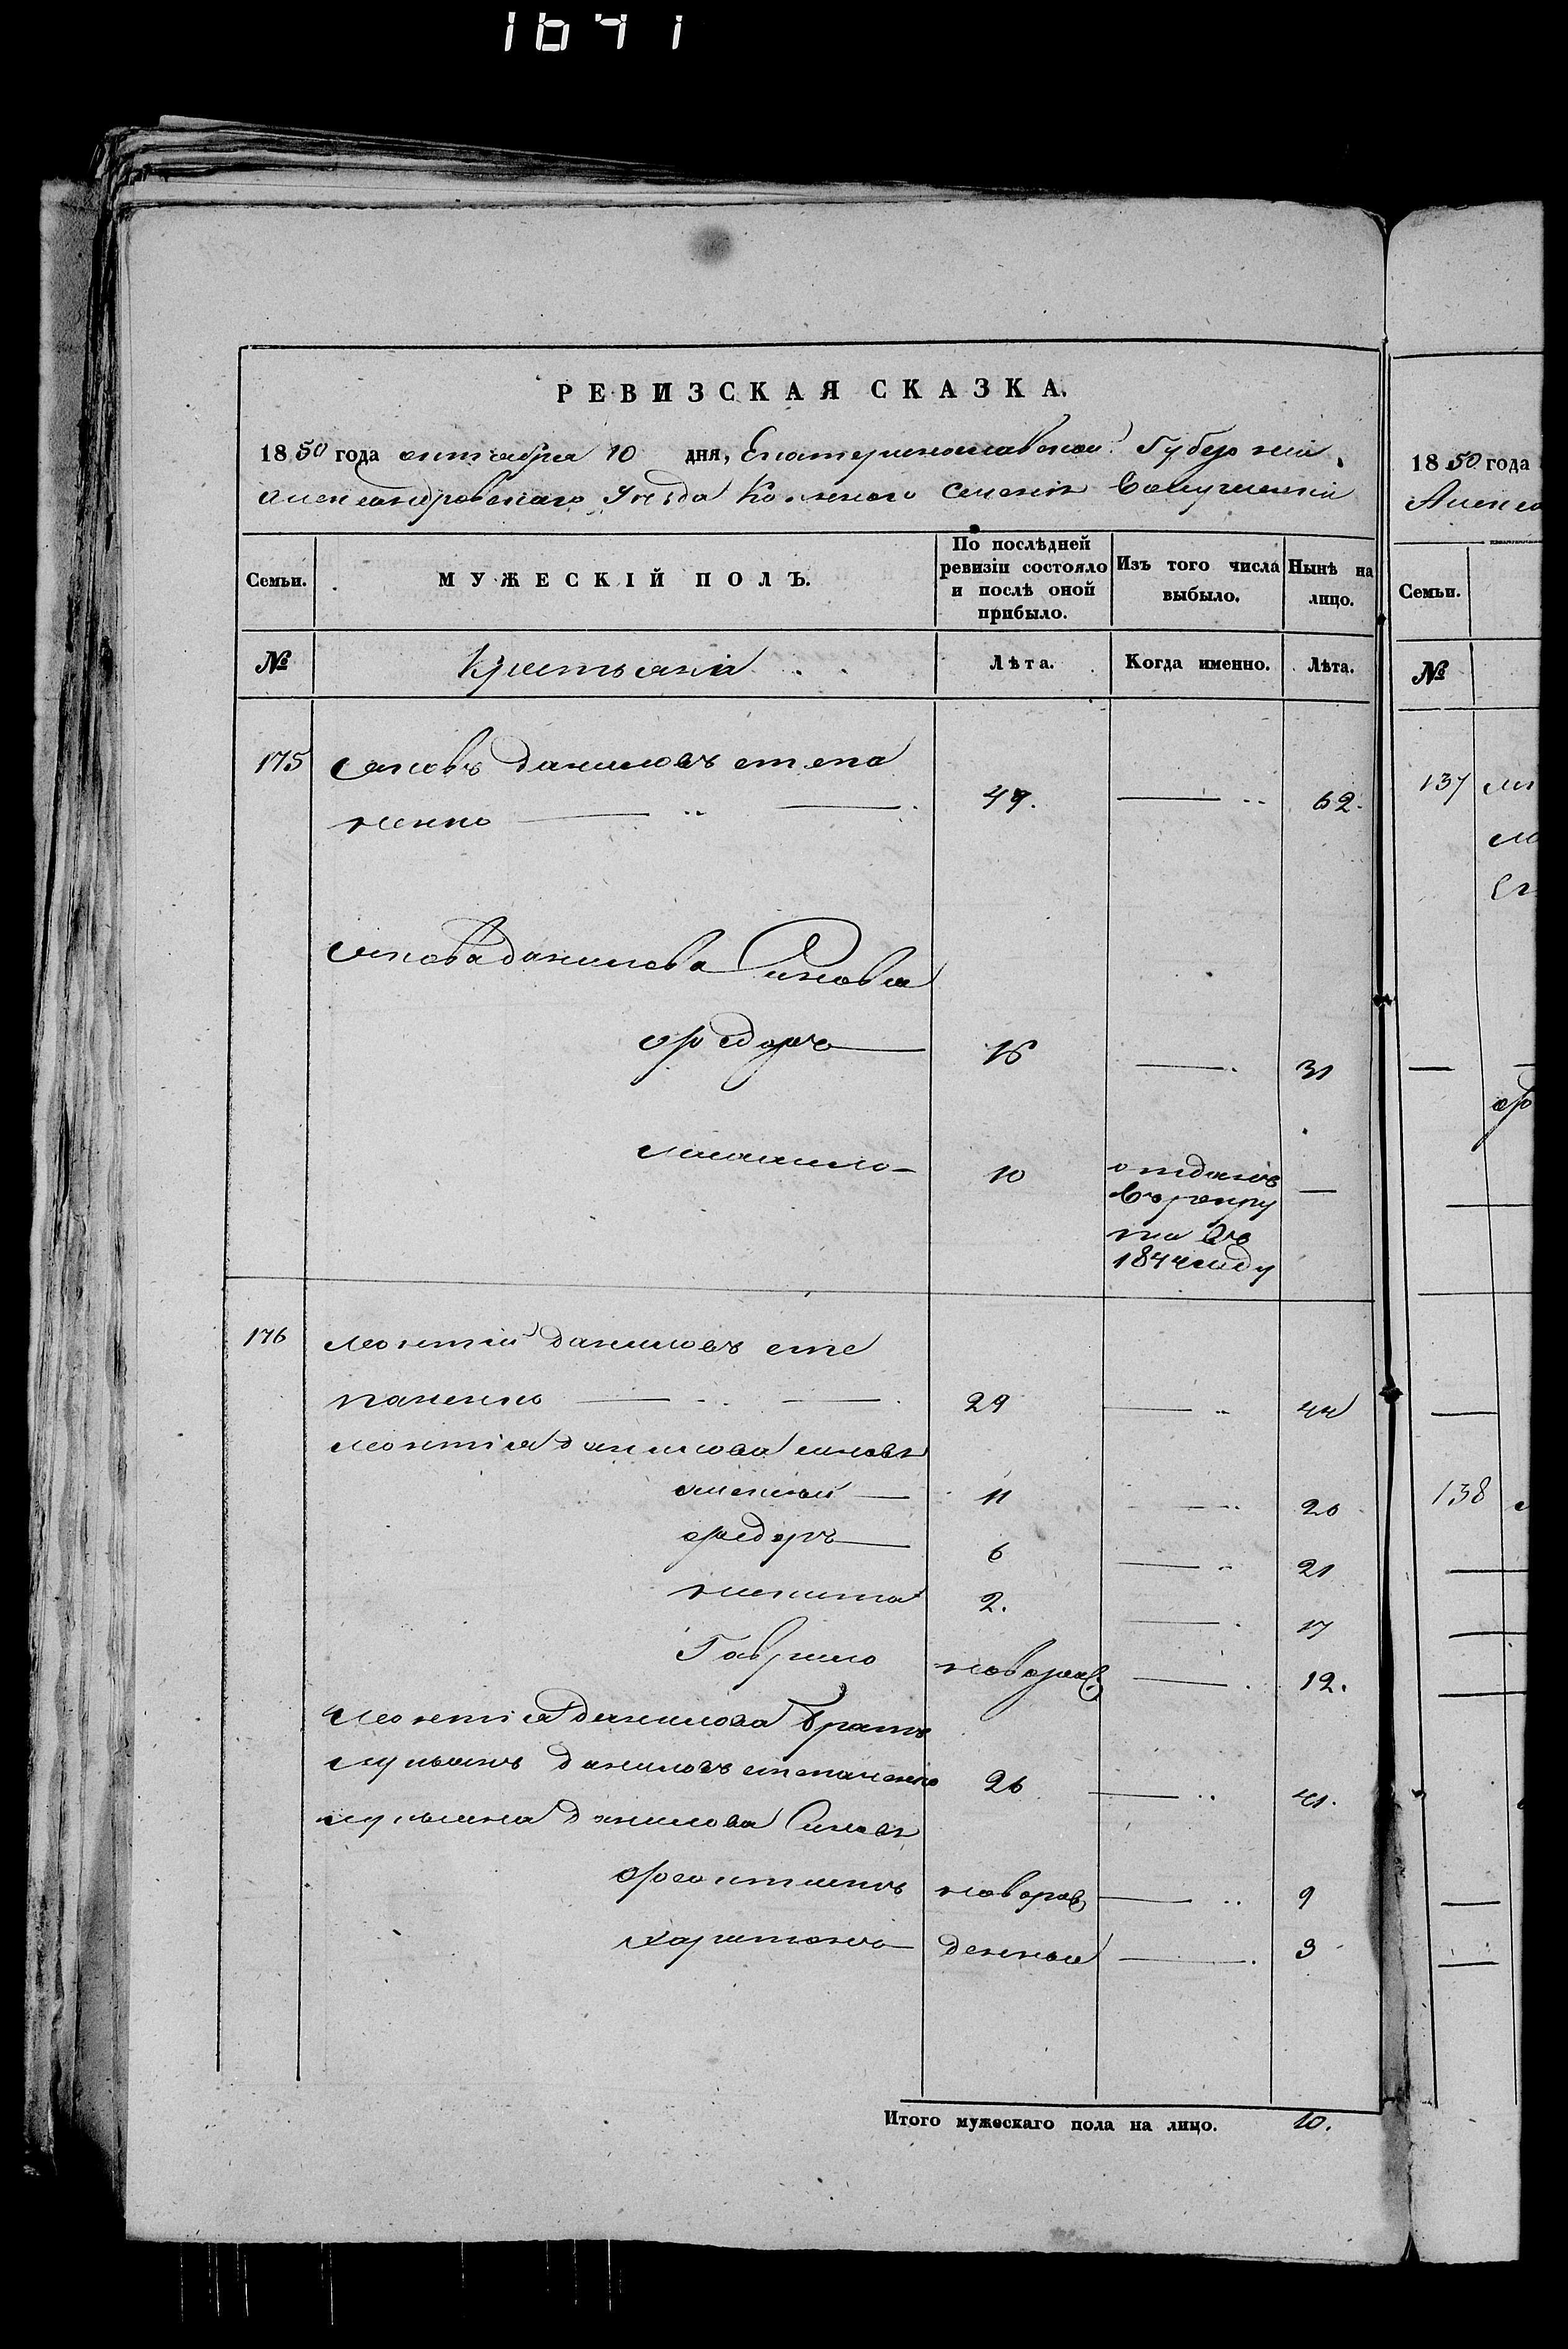 1641
РЕВИЗСКАЯ СКАЗКА.
1850 года октября 10 дня, Екатеринославской Губерніи,
Александровскаго Уѣзда Казенного Селенія
Семьи. МУЖЕСКІЙ ПОЛЪ. По послѣдней ревизіи состояло и послѣ оной прибыло. Изъ того числа выбыло. Нынѣ на лицо.
№ Крестьяни Лѣта. Когда именно. Лѣта.
175 Яковъ Даниловъ степа
ненко 47. 62.
Якова Данилова Синовья
Федоръ 16 31
Михаило 10 отданъ
въ рекру
ты въ
1844 году
176 Леонтій Даниловъ сте
паненко 29 44
Леонтія Данилова синовя
Алексѣй 11 26
Федоръ 6 21
Никита 2. 17
Гаврило новорож 12.
Леонтія Данилова братъ
Лукьянъ Даниловъ степаненко 26 41.
Лукьяна Данилова Синовя
Феоктистъ новорож 9
Харитонъ денныи 3
Итого мужескаго пола на лицо. 10.
1850 года
Алекса
Семьи.
№
137
138